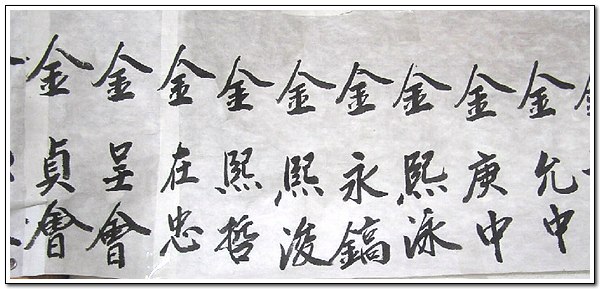 金允中
金庚中
金熙泳
金永鎬
金熙浚
金熙哲
金在忠
金呈會
金貞會